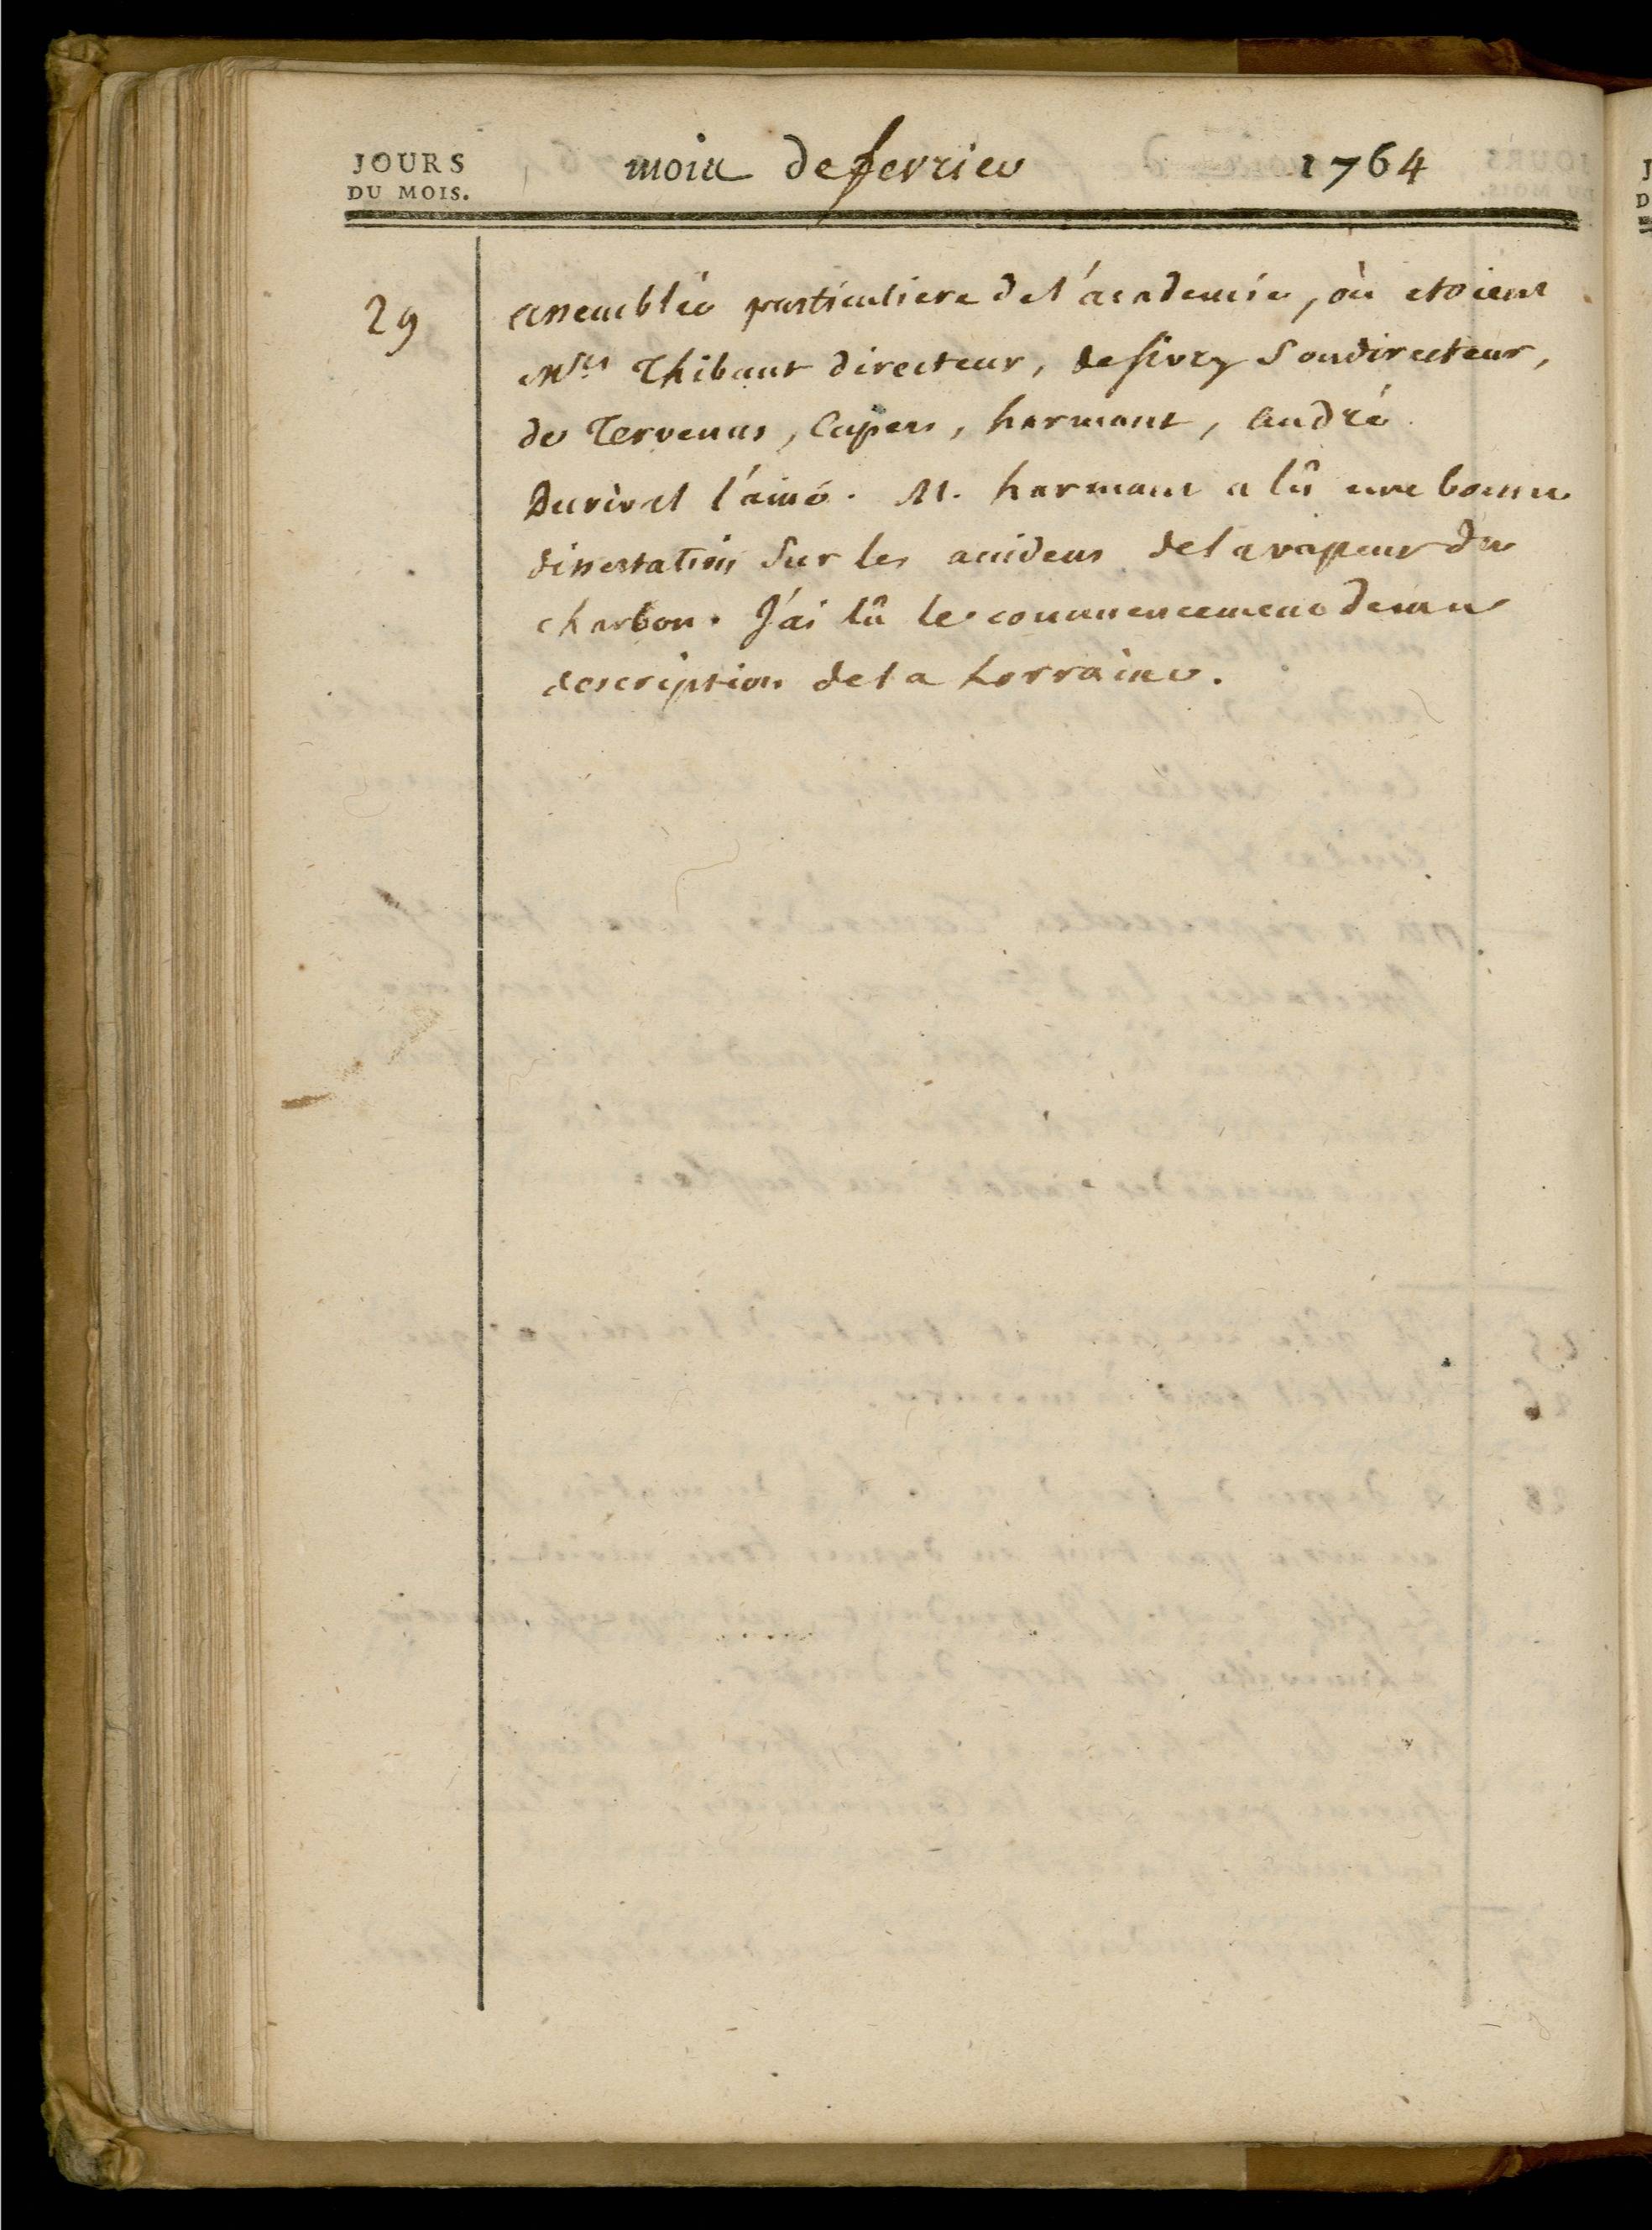 JOURS
DU MOIS.
mois de fevrier 1764
29
assemblée particuliere de l'academie, où etoient
Mrs Thibaut directeur, de sivry Sousdirecteur,
de Tervenus, Cupers, harmant, André
Durival l'ainé. M. harmant a lû une bonne
dissertation Sur les accidens de la vapeur du
charbon. J'ai lû le commencement d'une
description de la Lorraine.